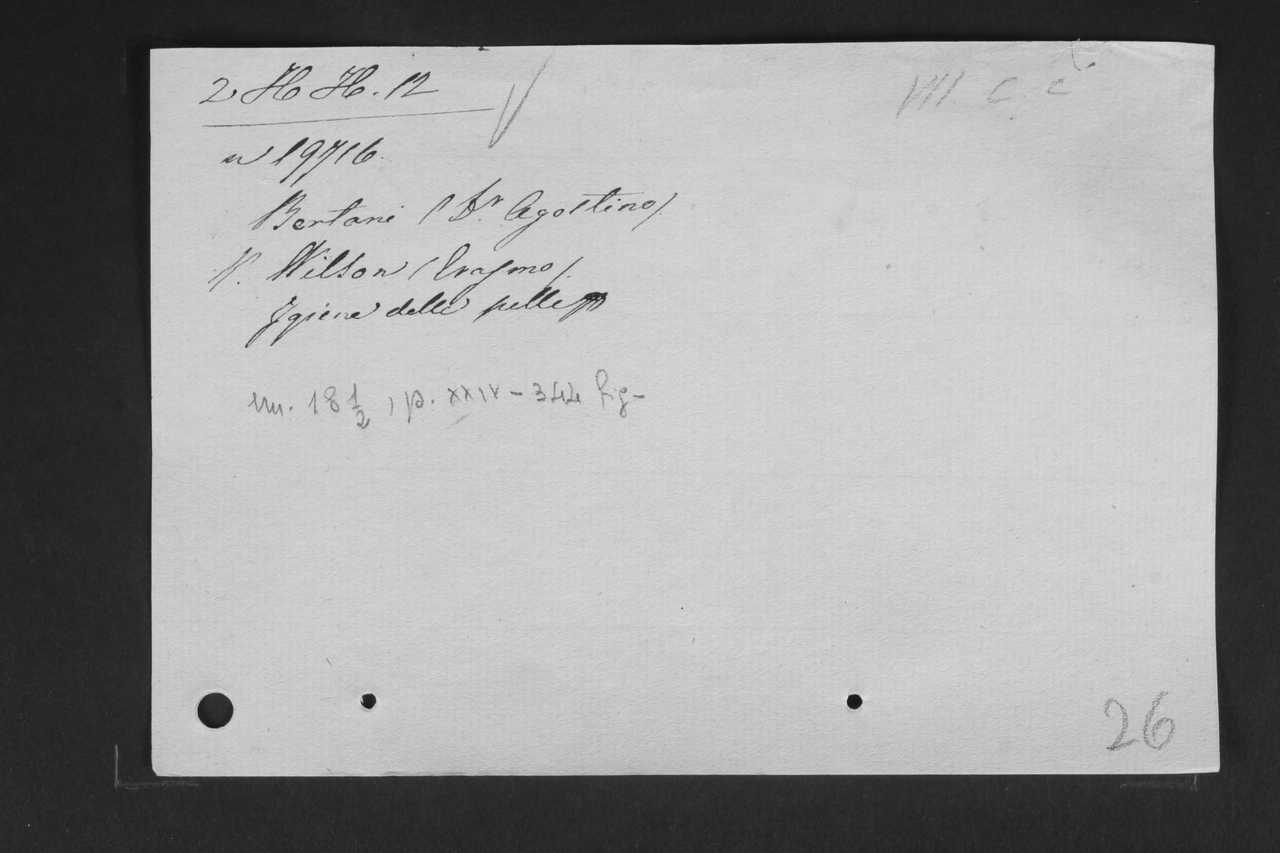 2 H H. 12
VII c. c
n 19716
Bertani (Dr. Agostino).
V. Wilson (Erasmo).
Igiene della pelle
cm. 18 1/2, p. XXIV - 344 fig -
26